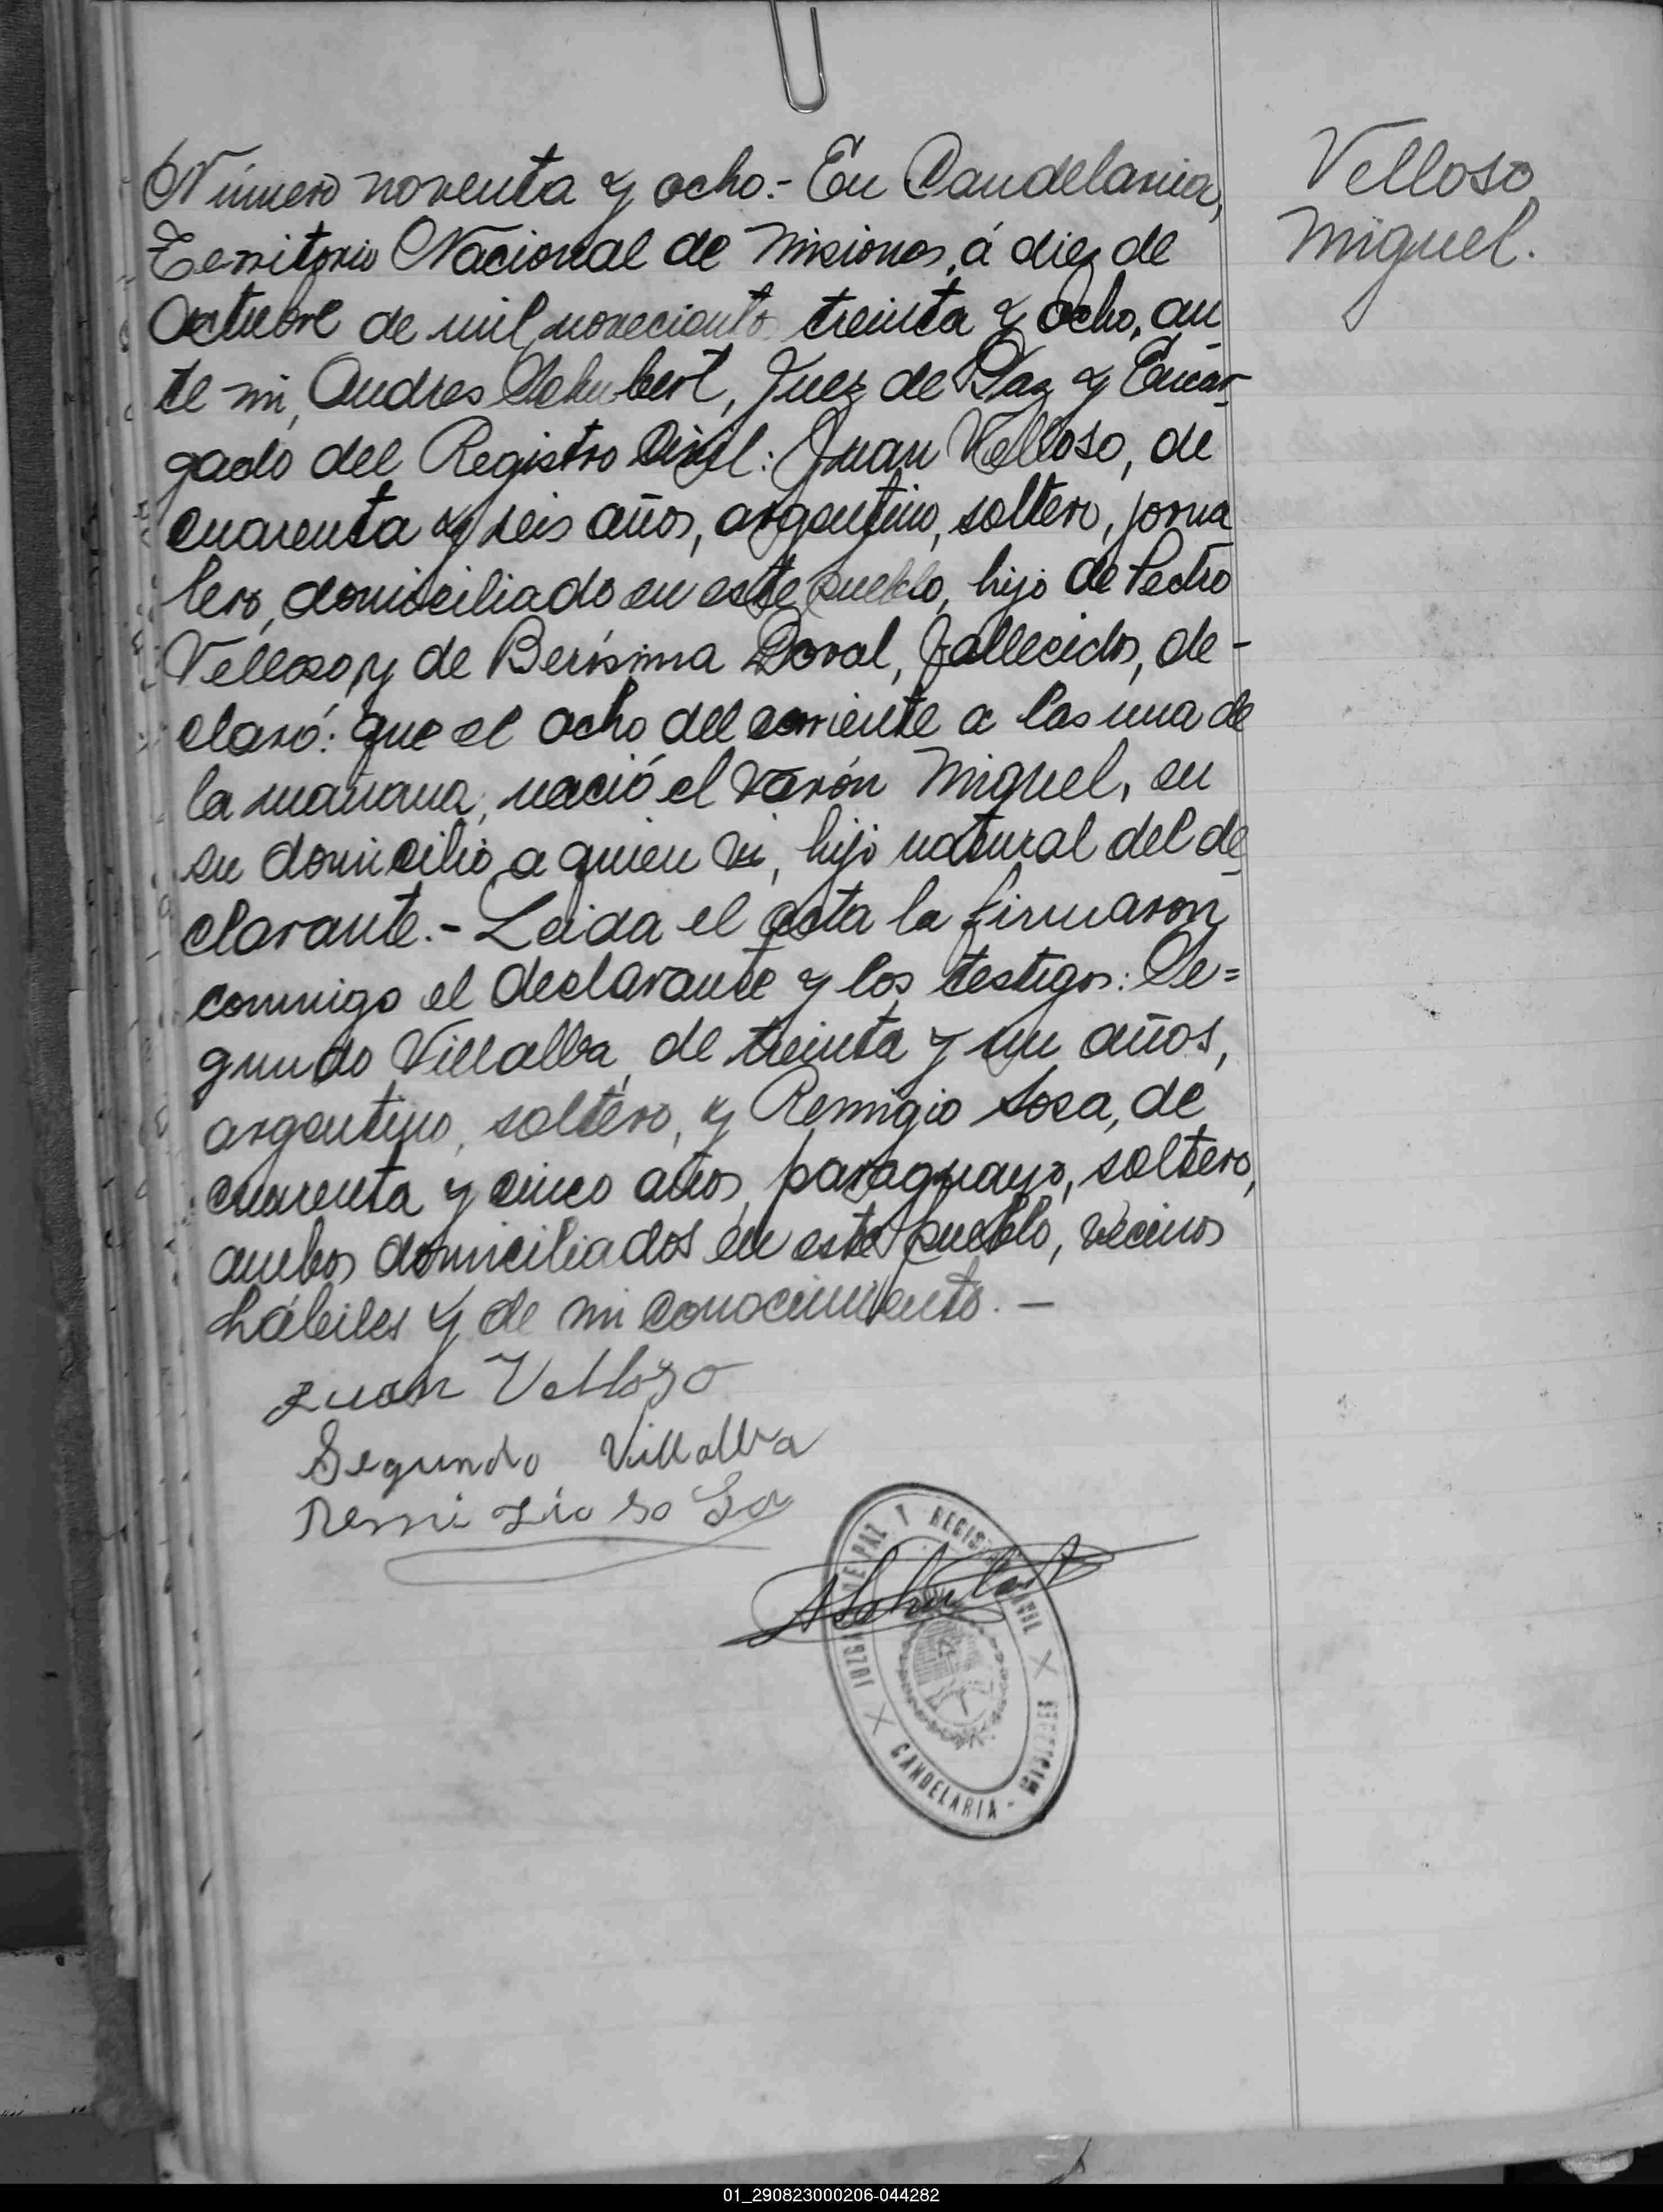 Número noventa y ocho.- En Candelaria,
Territorio Nacional de Misiones, á diez de
Octubre de mil novecientos treinta y ocho, an
te mi, Andres Schubert, Juez de Paz y Encar-
gado del Registro Civil: Juan Velloso, de
cuarenta y seis años, argentino, soltero, jorna
lero, domiciliado en este pueblo, hijo de Pedro
Velloso, y de Berísima Doval, fallecidos, de-
claró: que el ocho del corriente a las una de
la mañana, nació el varón Miguel, en
su domicilio a quien vi, hijo natural del de
clarante.- Leida el acta la firmaron
conmigo el declarante y los testigos: Se=
gundo Villalba, de treinta y un años,
argentino, soltero, y Remigio Sosa, de
cuarenta y cinco años, paraguayo, soltero,
ambos domiciliados en este pueblo, vecinos
hábiles y de mi conocimiento.-
Velloso
Miguel.
Juan Vellozo
Segundo Villalba
Remi Sosa
ASchubert
JUZGADO DE PAZ Y REGISTRO CIVIL
CANDELARIA - MISIONES
01_290823000206-044282